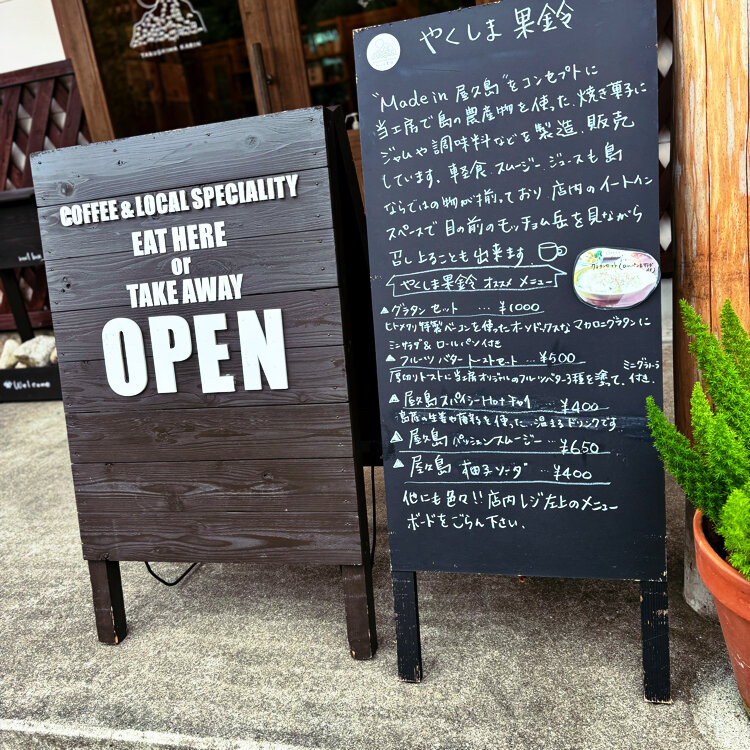 YAKUSHIMA KARIN
COFFEE & LOCAL SPECIALITY
EAT HERE
or
TAKE AWAY
OPEN
Welcome
やくしま 果鈴
"Made in 屋久島"をコンセプトに
当工房で島の農産物を使った、焼き菓子に
ジャムや調味料などを製造、販売
しています。軽食、スムージー、ジュースも島
ならではの物が揃っており、店内のイートイン
スペースで目の前のモッチョム岳を見ながら
召し上ることも出来ます
やくしま果鈴 オススメ メニュー
グラタン セット … ¥1000
ヒトメクリ特製ベーコンを使ったオーソドックスなマカロニグラタンに
ミニサラダ & ロールパン付き
フルーツバタートーストセット … ¥500
厚切りトーストに当工房オリジナルのフルーツバター3種を塗って、ミニグラノーラ付き。
屋久島スパイシーホットチャイ ¥400
島産の生姜や 使った、温まるドリンクです
屋久島 パッションスムージー … ¥650
屋久島 柚子ソーダ … ¥400
他にも色々!! 店内レジ左上のメニュー
ボードをごらん下さい。